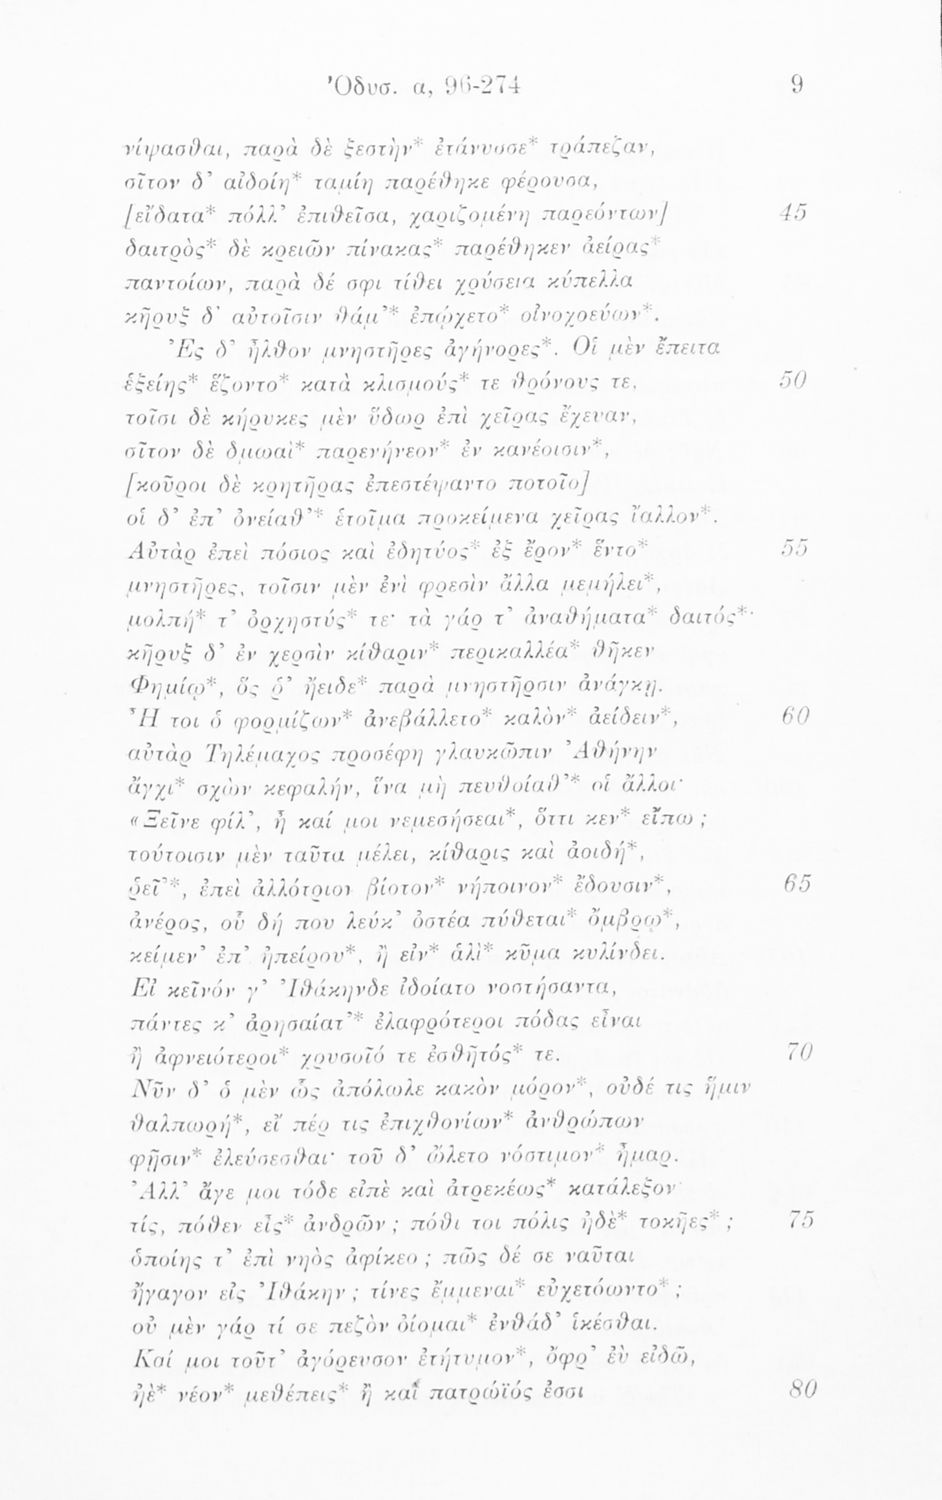 Ὀδυσ. α, 96-274 9
νίψασθαι, παρὰ δὲ ξεστὴν* ἐτάνυσσε* τράπεζαν,
σῖτον δ’ αἰδοίη* ταμίη παρέθηκε φέρουσα,
[εἴδατα* πόλλ’ ἐπιθεῖσα, χαριζομένη παρεόντων] 45
δαιτρὸς* δὲ κρειῶν πίνακας* παρέθηκεν ἀείρας*
παντοίων, παρὰ δέ σφι τίθει χρύσεια κύπελλα
κῆρυξ δ’ αὐτοῖσιν θάμ’* ἐπῴχετο* οἰνοχοεύων*.
Ἐς δ’ ἦλθον μνηστῆρες ἀγήνορες*. Οἱ μὲν ἔπειτα
ἑξείης* ἕζοντο* κατὰ κλισμούς* τε θρόνους τε, 50
τοῖσι δὲ κήρυκες μὲν ὕδωρ ἐπὶ χεῖρας ἔχευαν,
σῖτον δὲ δμωαὶ* παρενήνεον* ἐν κανέοισιν*,
[κοῦροι δὲ κρητῆρας ἐπεστέψαντο ποτοῖο]
οἱ δ’ ἐπ’ ὀνείαθ’* ἑτοῖμα προκείμενα χεῖρας ἴαλλον*.
Αὐτὰρ ἐπεὶ πόσιος καὶ ἐδητύος* ἐξ ἔρον* ἕντο* 55
μνηστῆρες, τοῖσιν μὲν ἐνὶ φρεσὶν ἄλλα μεμήλει*,
μολπή* τ’ ὀρχηστύς* τε· τὰ γάρ τ’ ἀναθήματα* δαιτός*·
κῆρυξ δ’ ἐν χερσὶν κίθαριν* περικαλλέα* θῆκεν
Φημίῳ*, ὅς ῥ’ ἤειδε* παρὰ μνηστῆρσιν ἀνάγκῃ.
Ἦ τοι ὁ φορμίζων* ἀνεβάλλετο* καλὸν* ἀείδειν*, 60
αὐτὰρ Τηλέμαχος προσέφη γλαυκῶπιν Ἀθήνην
ἄγχι* σχὼν κεφαλήν, ἵνα μὴ πευθοίαθ’* οἱ ἄλλοι·
«Ξεῖνε φίλ’, ἦ καί μοι νεμεσήσεαι*, ὅττι κεν* εἴπω ;
τούτοισιν μὲν ταῦτα μέλει, κίθαρις καὶ ἀοιδή*,
ῥεῖ’*, ἐπεὶ ἀλλότριον βίοτον* νήποινον* ἔδουσιν*, 65
ἀνέρος, οὗ δή που λεύκ’ ὀστέα πύθεται* ὄμβρῳ*,
κείμεν’ ἐπ’ ἠπείρου*, ἢ εἰν* ἁλὶ* κῦμα κυλίνδει.
Εἰ κεῖνόν γ’ Ἰθάκηνδε ἰδοίατο νοστήσαντα,
πάντες κ’ ἀρησαίατ’* ἐλαφρότεροι πόδας εἶναι
ἢ ἀφνειότεροι* χρυσοῖό τε ἐσθῆτός* τε. 70
Νῦν δ’ ὁ μὲν ὣς ἀπόλωλε κακὸν μόρον*, οὐδέ τις ἥμιν
θαλπωρή*, εἴ πέρ τις ἐπιχθονίων* ἀνθρώπων
φῇσιν* ἐλεύσεσθαι· τοῦ δ’ ὤλετο νόστιμον* ἦμαρ.
Ἀλλ’ ἄγε μοι τόδε εἰπὲ καὶ ἀτρεκέως* κατάλεξον·
τίς, πόθεν εἰς* ἀνδρῶν ; πόθι τοι πόλις ἠδὲ* τοκῆες* ; 75
ὁποίης τ’ ἐπὶ νηὸς ἀφίκεο ; πῶς δέ σε ναῦται
ἤγαγον εἰς Ἰθάκην ; τίνες ἔμμεναι* εὐχετόωντο* ;
οὐ μὲν γάρ τί σε πεζὸν ὀίομαι* ἐνθάδ’ ἱκέσθαι.
Καί μοι τοῦτ’ ἀγόρευσον ἐτήτυμον*, ὄφρ’ ἐὺ εἰδῶ,
ἠὲ* νέον* μεθέπεις* ἦ καὶ πατρώϊός ἐσσι 80